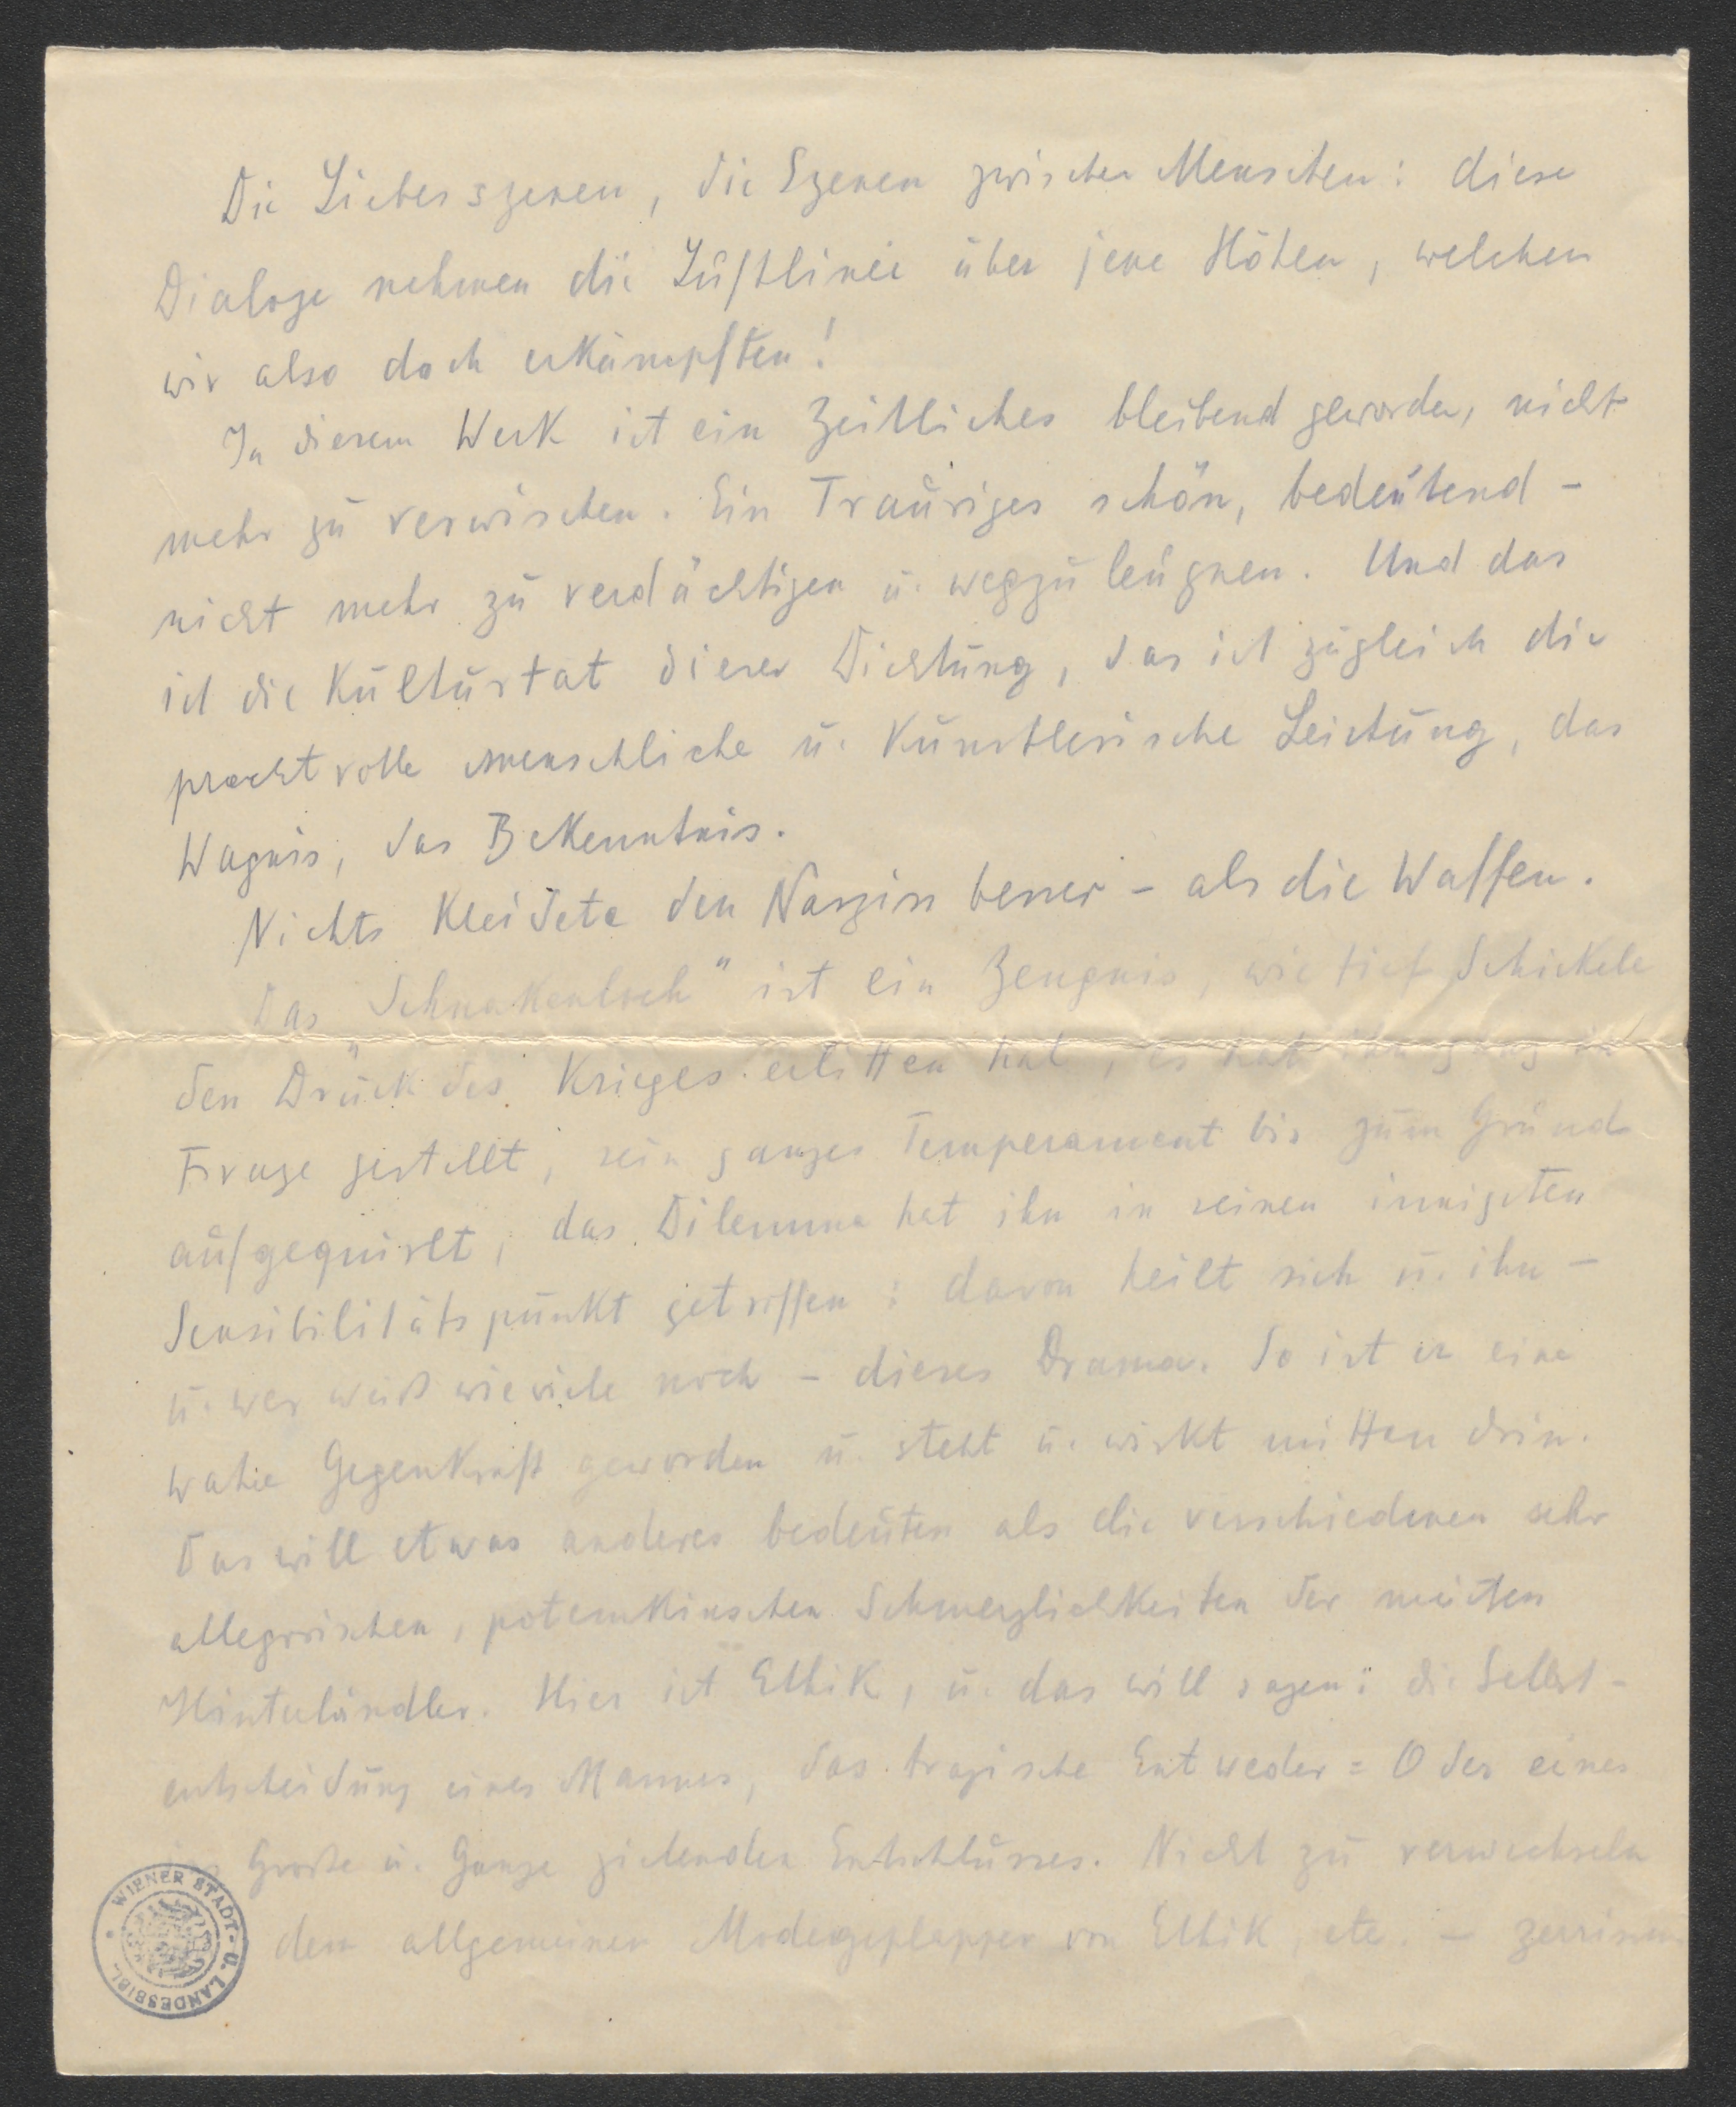 Die Liebesszenen, die Szenen zwischen Menschen: diese
Dialoge nehmen die Luftlinie über jene Höhen, welchen
wir also doch erkämpften!
In diesem Werk ist ein Zeitliches bleibend geworden, nicht
mehr zu verwischen. Ein Trauriges schön, bedeutend -
nicht mehr zu verdächtigen u. wegzuleugnen. Und das
ist die Kulturtat dieser Dichtung, das ist zugleich die
prachtvolle menschliche u. künstlerische Leistung, das
Wagnis, das Bekenntnis.
Nichts kleidete den Narziss besser - als die Waffen.
Das „Schnakenloch" ist ein Zeugnis, wie tief Schickele
den Druck des Krieges erlitten hat, es hat ihn ganz in
Frage gestellt, sein ganzes Temperament bis zum Grund
aufgequirlt, das Dilemma hat ihn in seinen innigsten
Sensibilitätspunkt getroffen: davon heilt sich u. ihn -
u. wer weiß wieviele noch - dieses Drama. So ist er eine
wahre Gegenkraft geworden u. steht u. wirkt mitten drin.
Das will etwas anderes bedeuten als die verschiedenen sehr
allegorischen, potemkinschen Schmerzlichkeiten der meisten
Hinterländler. Hier ist Ethik, u. das will sagen: die Selbst-
entscheidung eines Mannes, das tragische Entweder=Oder eines
ins Große u. Ganze zielenden Entschlusses. Nicht zu verwechseln
dem allgemeinen Modegeplapper von Ethik, etc. -
WIENER STADT- U. LANDESBIBL.